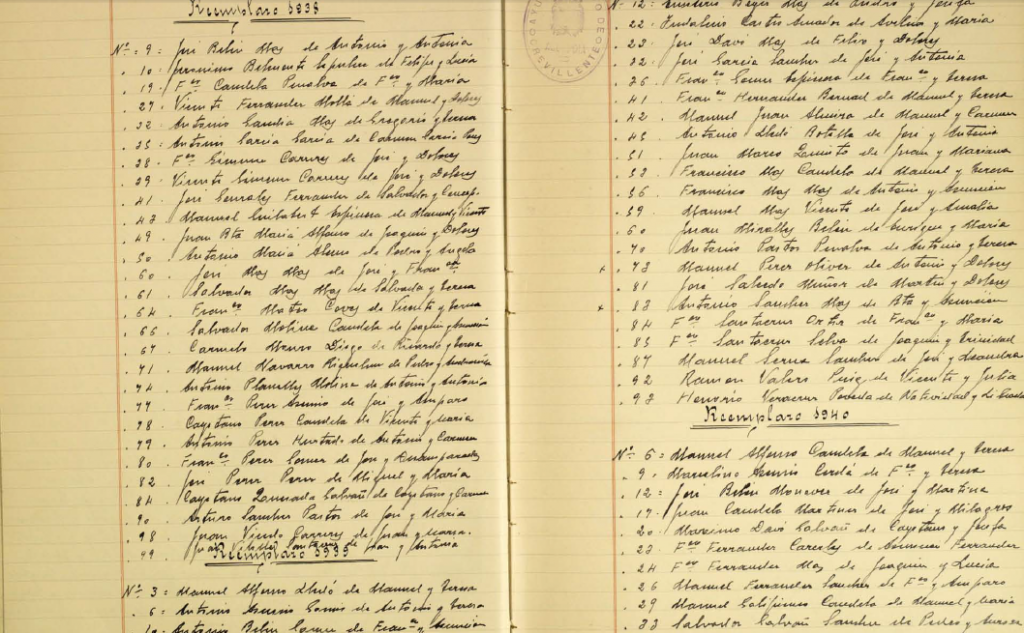 Reemplazo 1938
Nº = 9 = José Belén Mas de Antonio y Antonia
" 10 . Jerónimo Belmonte Sepulcre de Felipe y Lucía
" 19 . Fco Candela Penalva de Fco y María
" 27 . Vicente Ferrandez Mollá de Manuel y Dolores
" 32 . Antonio Gandia Mas de Gregorio y Teresa
" 35 = Antonio García García de Carmen García
" 38 . Fco Gimenez Carreres de José y Dolores
" 39 . Vicente Gimenez Carreres de José y Dolores
" 41 . José Gonzalez Ferrandez de Salvador y Concep.
" 43 . Manuel Guilabert Espinosa de Manuel y Vicenta
" 49 . Juan Bta María Alfonso de Joaquín y Dolores
" 50 . Antonio María de Pedro y Angela
" 60 . José Mas Mas de José y Franca
" 61 . Salvador Mas Mas de Salvador y Teresa
" 64 . Franco Mateo Coves de Vicente y Teresa
" 66 . Salvador Molina Candela de Joaquín y Asunción
" 67 . Carmelo Diego de Ricardo y Teresa
" 71 . Manuel Navarro Riquelme de Pedro y
" 74 . Antonio Planelles Molina de Antonio y Antonia
" 77 . Franco Perez Asensio de José y Amparo
" 78 . Cayetano Perez Candela de Vicente y María
" 79 . Antonio Perez Hurtado de Antonio y Carmen
" 80 . Franco Perez Gomez de José y
" 82 . José Perez Perez de Miguel y María
" 84 . Cayetano Quesada Galvañ de Cayetano y Carmen
" 90 . Arturo Sanchez Pastor de José y María
" 98 . Juan Vicedo Carreres de Juan y María.
" 99 de Juan y Antonia
Reemplazo 1939
Nº 3 = Manuel Alfonso Lledó de Manuel y Teresa
" 6 = Antonio Asensio de Antonio y Teresa
" 10 = Antonio Belén de Franco y Asunción
Nº 12 = Mas de y Josefa
" 22 . Castro Amador de Avelino y María
" 23 . José Davó Mas de Felix y Dolores
" 32 . José García Sanchez de José y Antonia
" 36 . Franco Gomez Espinosa de Franco y Teresa
" 41 . Franco Hernandez Bernad de Manuel y Teresa
" 42 . Manuel Juan de Manuel y Carmen
" 45 . Antonio Lledó Botella de José y Antonia
" 51 . Juan Marco de Juan y Mariana
" 53 . Francisco Mas Candela de Manuel y Teresa
" 56 . Francisco Mas Mas de Antonio y Asunción
" 59 . Manuel Mas Vicente de José y Amalia
" 60 . Juan Miralles Belén de Enrique y María
" 70 . Antonio Pastor Penalva de Antonio y Teresa
x " 73 . Manuel Perez Oliver de Antonio y Dolores
" 81 . José Salcedo Muñoz de Martín y Dolores
x " 83 . Antonio Sanchez Mas de Bta y Asunción
" 84 . Fco Santacruz Ortiz de Franco y María
" 85 . Fco Santacruz Selva de Joaquín y Trinidad
" 87 . Manuel Serna Sanchez de José y Leandra
" 92 . Ramon Valero Puig de Vicente y Julia
" 93 . Honorio Veracruz Poveda de Natividad y
Reemplazo 1940
Nº 6 = Manuel Alfonso Candela de Manuel y Teresa
" 9 = Marcelino Asensio Cerdá de Fco y Teresa
" 12 = José Belén Monever de José y Martina
" 17 . Juan Candela Martinez de José y Milagros
" 20 . Maximo Davó Galvañ de Cayetano y Josefa
" 23 . Fco Ferrandez de Asuncion Ferrandez
" 24 . Fco Ferrandez Mas de Joaquín y Lucia
" 26 . Manuel Ferrandez Sanchez de Fco y Amparo
" 29 . Manuel Galipienso Candela de Manuel y María
" 33 . Salvador Galvañ Sanchez de Pedro y Aurora